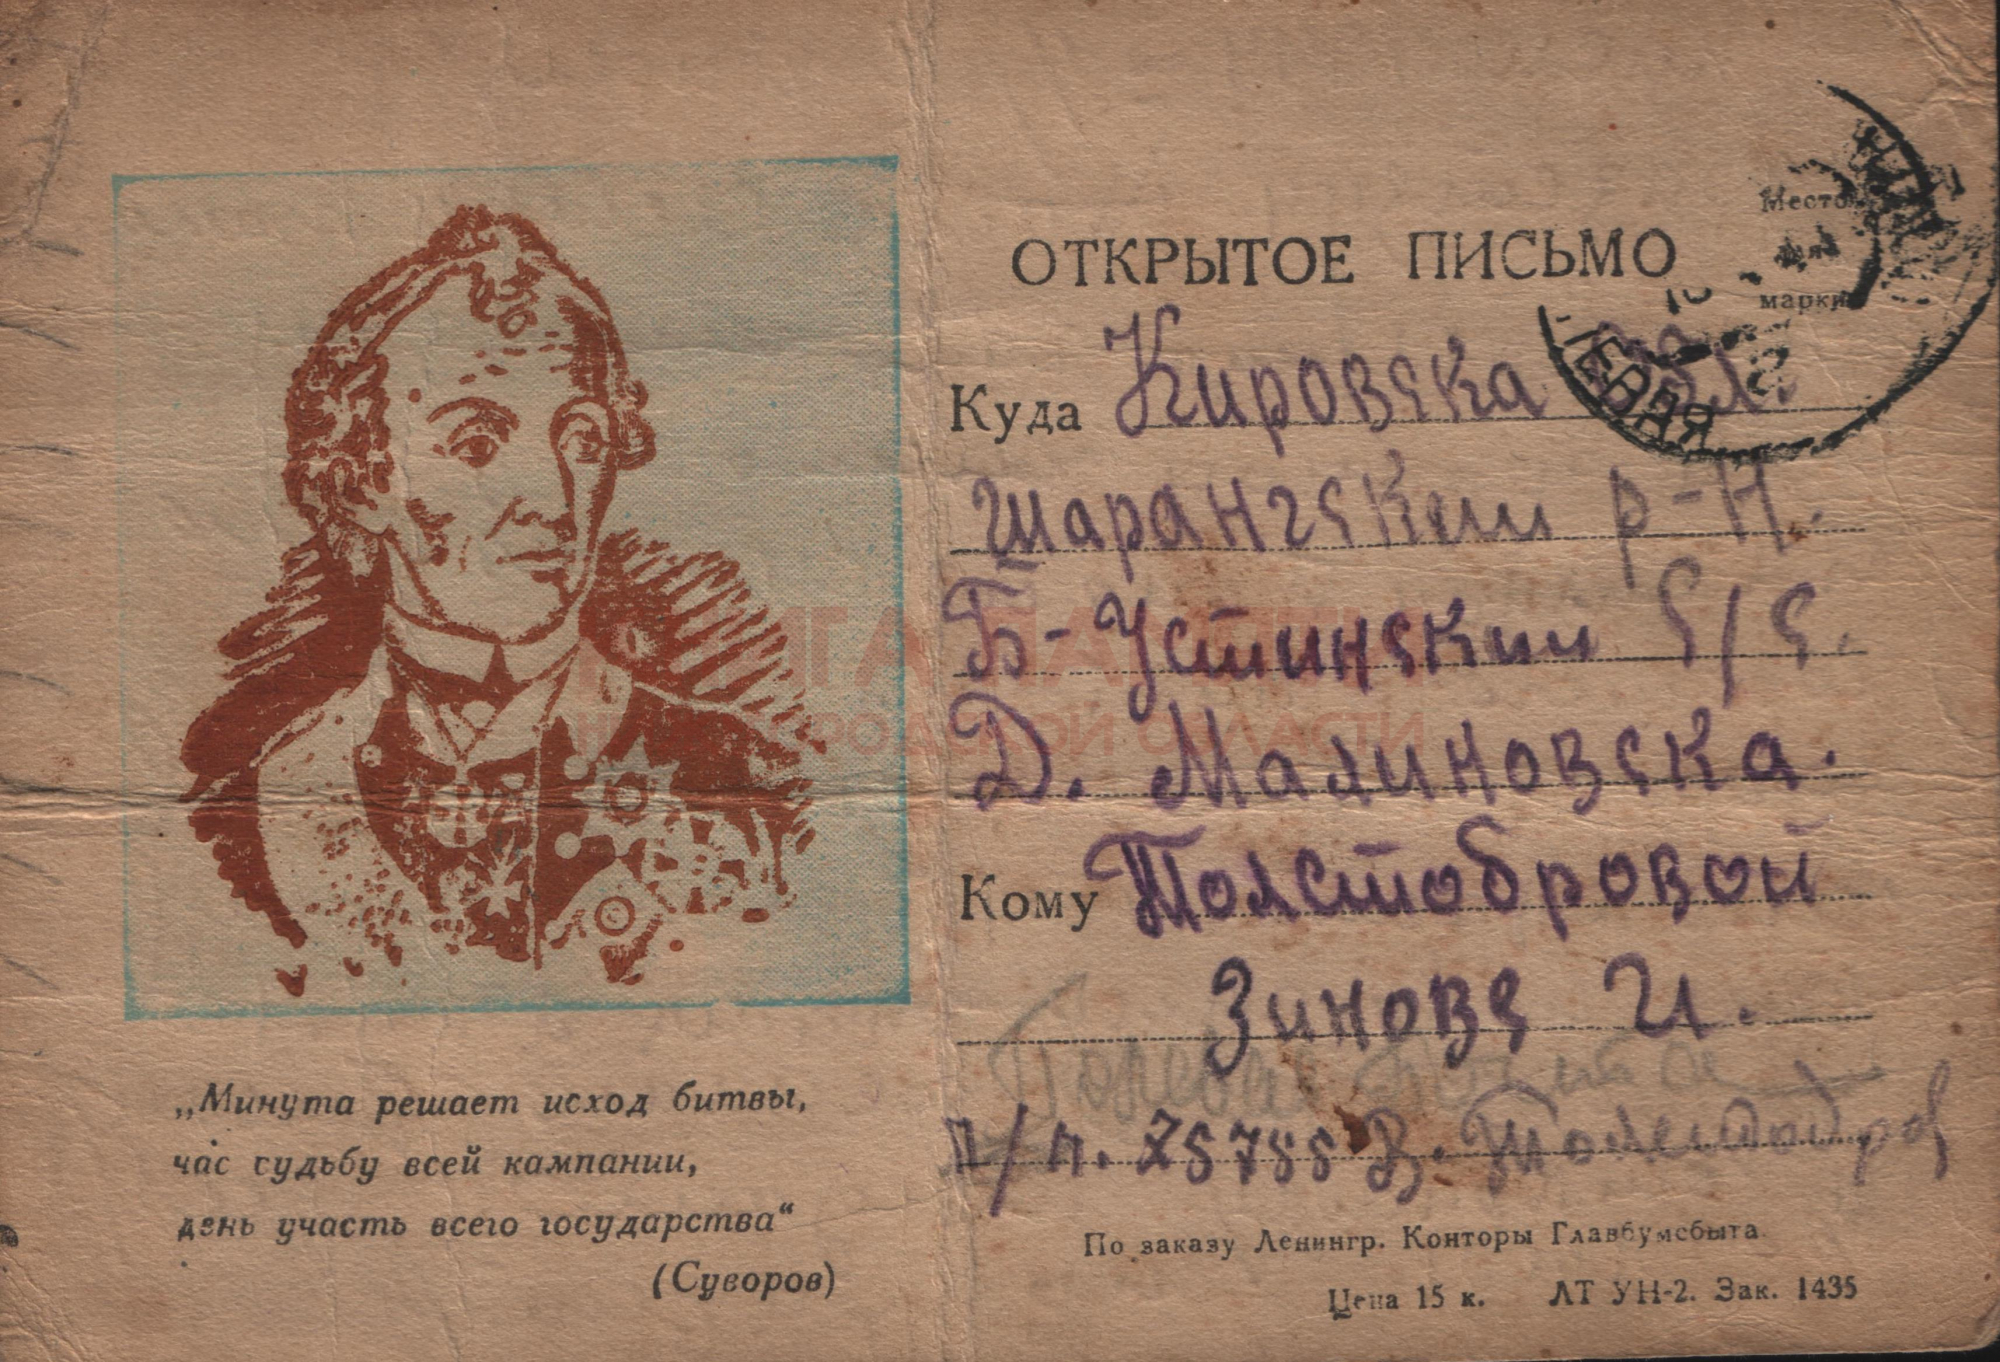 „Минута решает исход битвы,
час судьбу всей кампании,
день участь всего государства“
(Суворов)
ОТКРЫТОЕ ПИСЬМО
Место
для
марки
ПОЛЕВАЯ
Куда Кировска обл.
Шарангский р-н.
Б-Устинский с/с.
Д. Малиновска.
Кому Толстобровой
Зинове И.
п/п. 75755 В. Толстобров
По заказу Ленингр. Конторы Главбумсбыта
Цена 15 к. ЛТ УН-2. Зак. 1435
КНИГА ПАМЯТИ
НИЖЕГОРОДСКОЙ ОБЛАСТИ